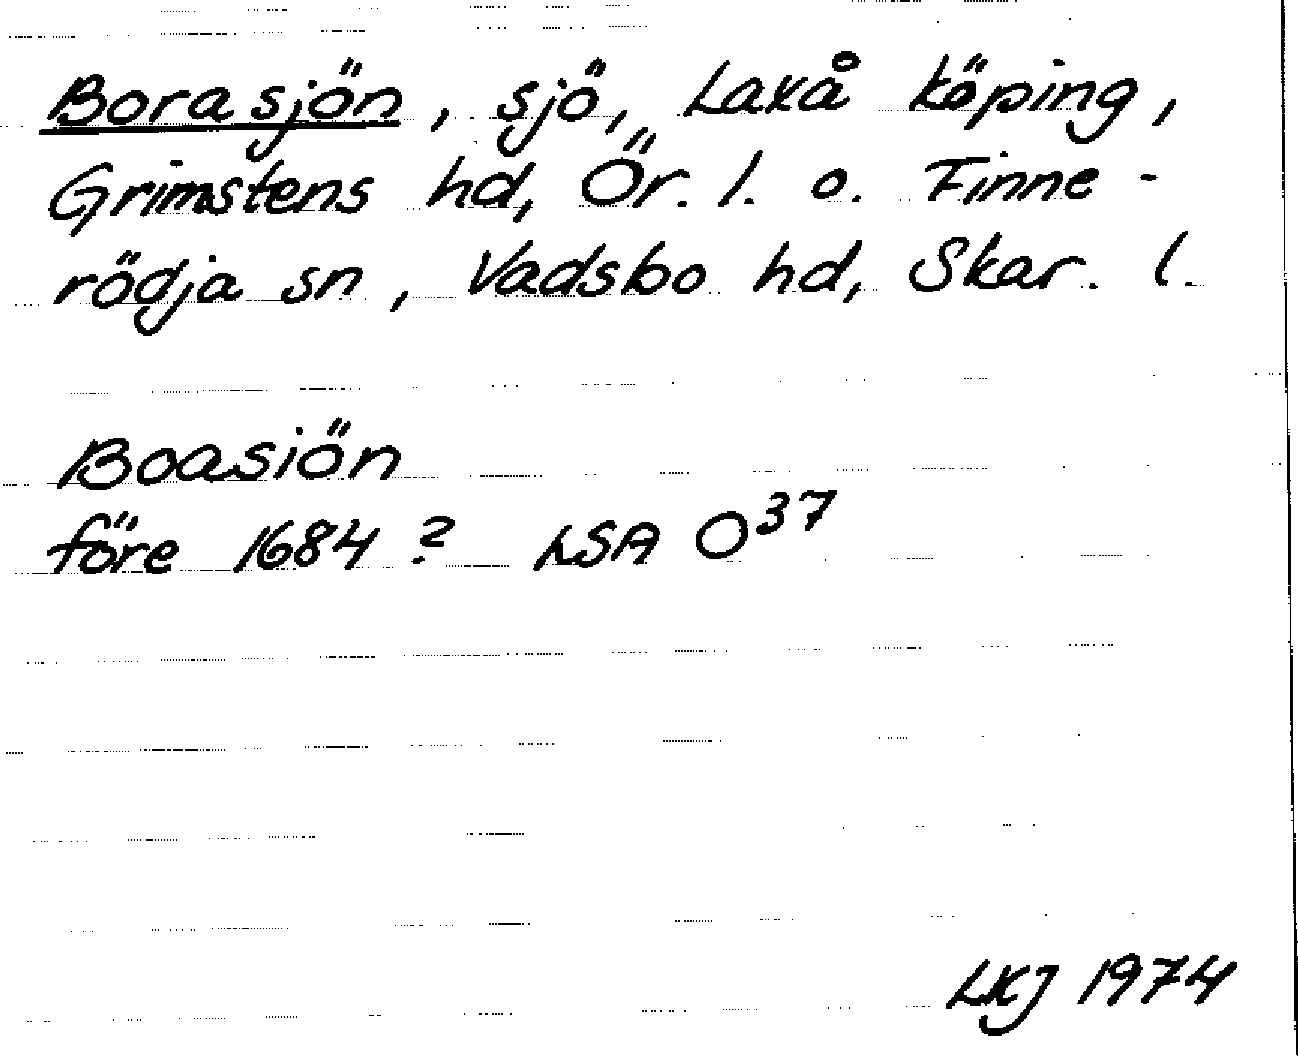 Borasjön, sjö, Laxå köping,
Grimstens hd, Ör. l. o. Finne-
rödja sn, Vadsbo hd, Skar. l.
Boasiön
före 1684? LSA O37
LKJ 1974